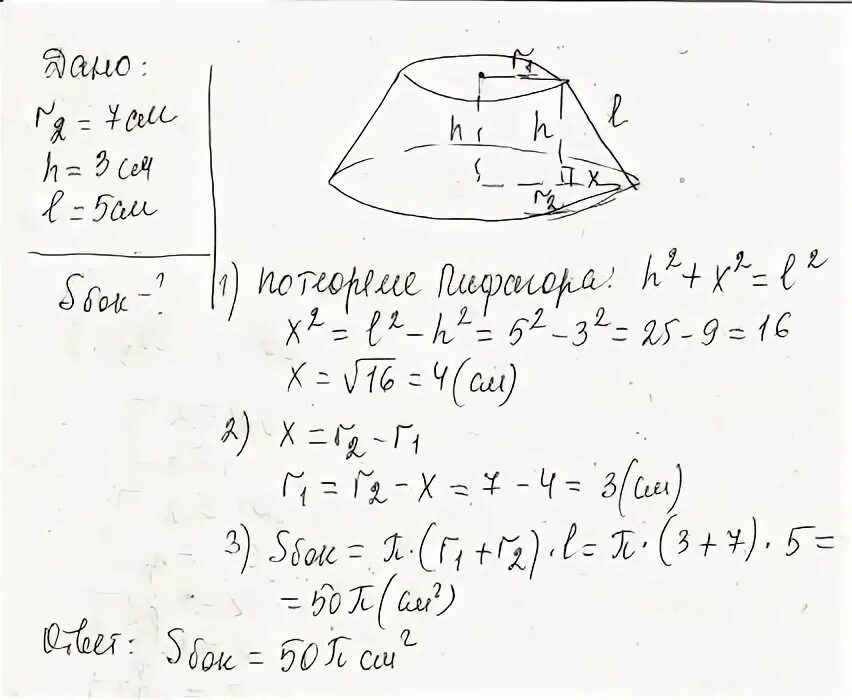 Дано:
r₂ = 7 см
h = 3 см
l = 5 см
Sбок - ?
r₁
h
h
l
x
r₂
1) по теореме Пифагора: h² + x² = l²
x² = l² - h² = 5² - 3² = 25 - 9 = 16
x = √16 = 4 (см)
2) x = r₂ - r₁
r₁ = r₂ - x = 7 - 4 = 3 (см)
3) Sбок = π · (r₁ + r₂) · l = π · (3 + 7) · 5 =
= 50π (см²)
Ответ: Sбок = 50π см²